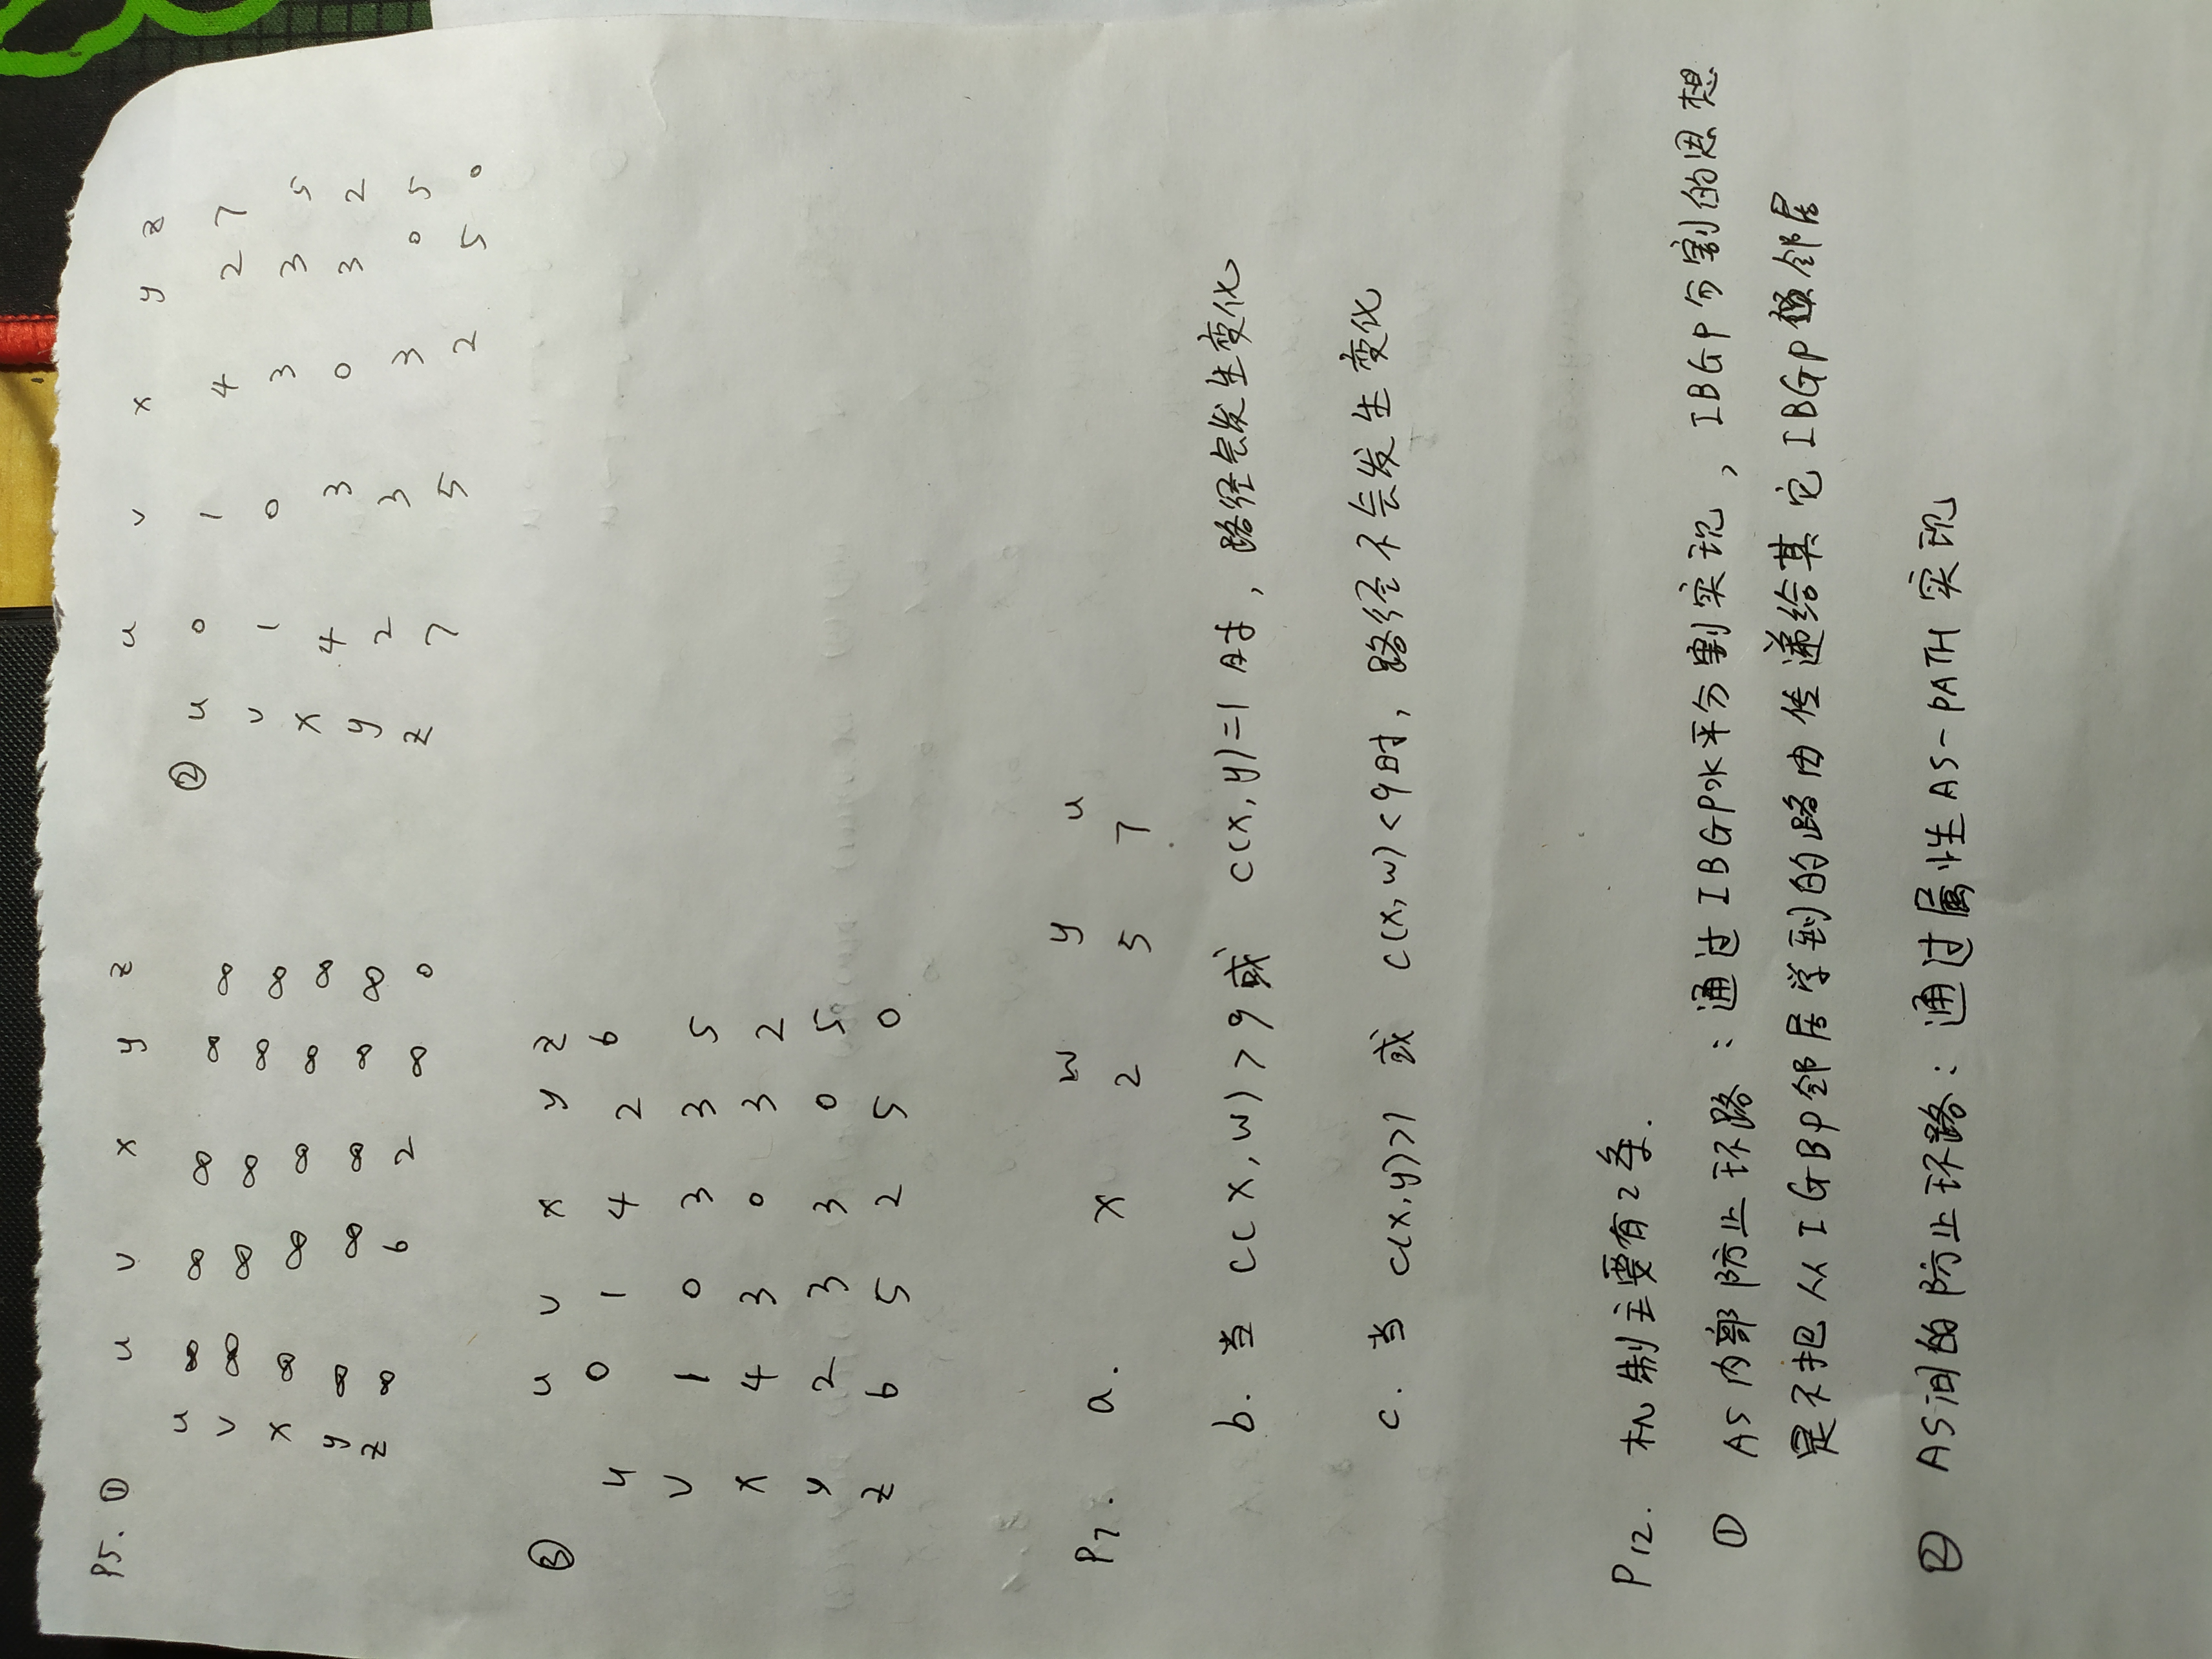 P5. ① u v x y z
u ∞ ∞ ∞ ∞ ∞
v ∞ ∞ ∞ ∞ ∞
x ∞ ∞ ∞ ∞ ∞
y ∞ ∞ ∞ ∞ ∞
z ∞ 6 2 ∞ 0
u v x y z
② u 0 1 4 2 7
v 1 0 3 3 5
x 4 3 0 3 2
y 2 3 3 0 5
z 7 5 2 5 0
③ u v x y z
u 0 1 4 2 6
v 1 0 3 3 5
x 4 3 0 3 2
y 2 3 3 0 5
z 6 5 2 5 0
w y u
P7. a. x 2 5 7
b. 当 c(x,w)>9或 c(x,y)=1 时,路径会发生变化
c. 当 c(x,y)>1 或 c(x,w)<9时,路径不会发生变化
P12. 机制主要有2条.
① AS内部防止环路:通过IBGP水平分割实现,IBGP分割的思想
是不把从IGBP邻居学到的路由传递给其它IBGP邻居
② AS间的防止环路:通过属性AS-PATH实现